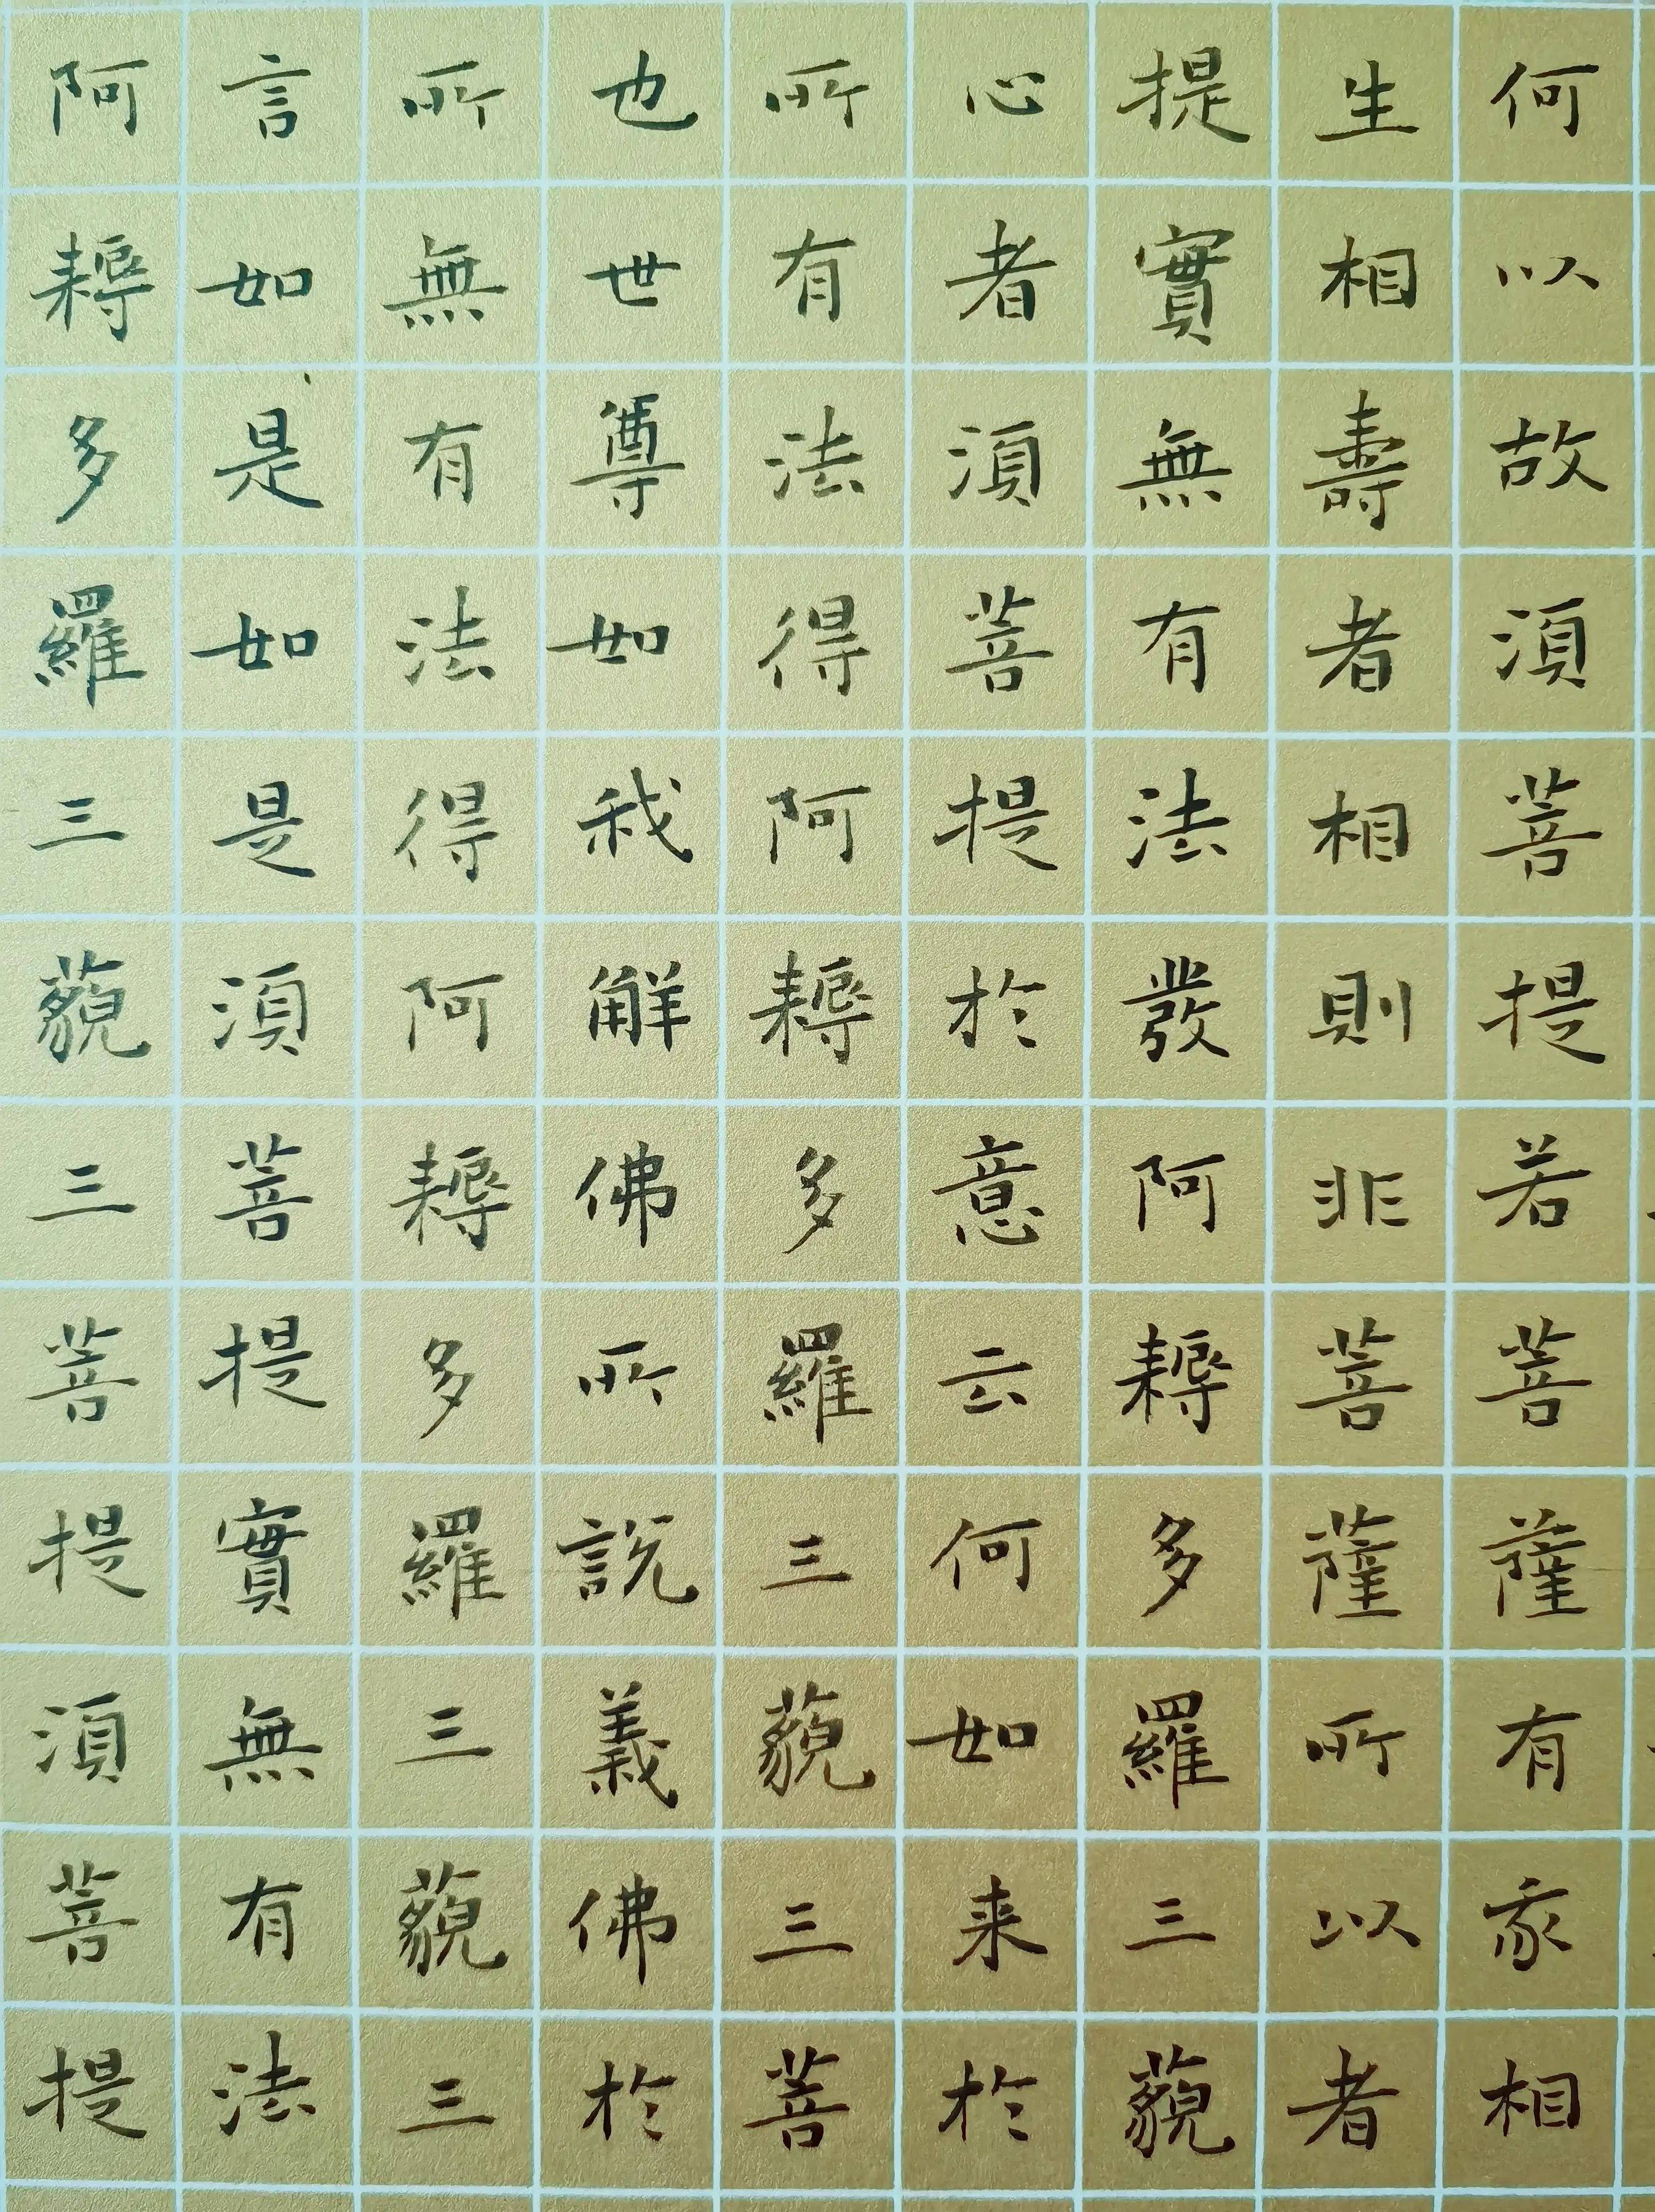 何以故須菩提若菩薩有我相
生相壽者相則非菩薩所以者
提實無有法發阿耨多羅三藐
心者須菩提於意云何如来於
所有法得阿耨多羅三藐三菩
也世尊如我解佛所說義佛於
所無有法得阿耨多羅三藐三
言如是如是須菩提實無有法
阿耨多羅三藐三菩提須菩提